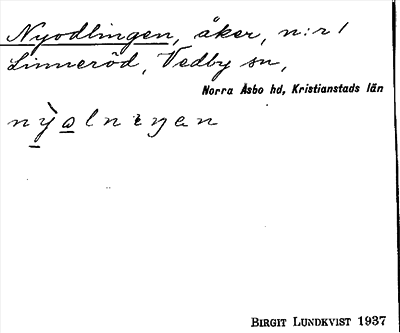 Nyodlingen, åker, n:r 1
Linneröd, Vedby sn,
Norra Åsbo hd, Kristianstads län
BIRGIT LUNDKVIST 1937